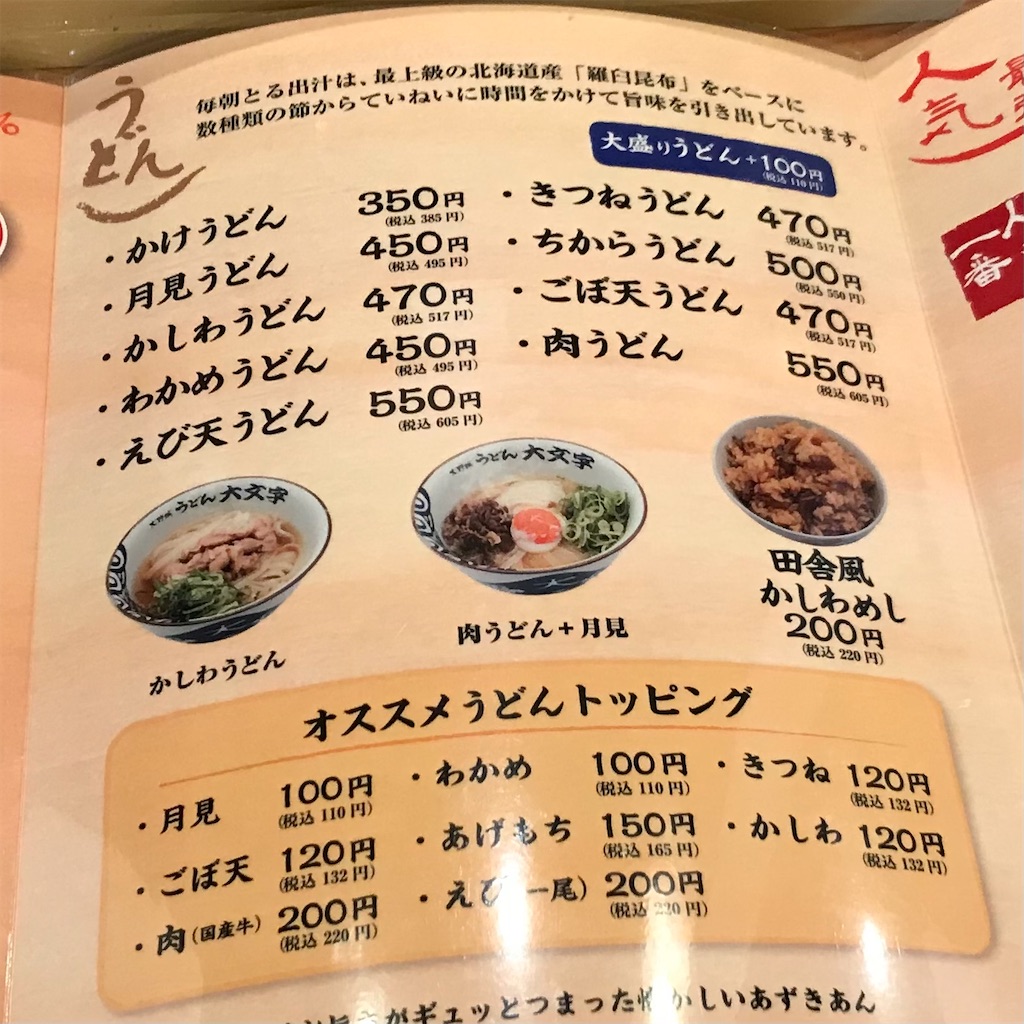 うどん
毎朝とる出汁は、最上級の北海道産「羅臼昆布」をベースに
数種類の節からていねいに時間をかけて旨味を引き出しています。
大盛りうどん+100円
(税込 110円)
・かけうどん 350円
(税込 385円)
・月見うどん 450円
(税込 495円)
・かしわうどん 470円
(税込 517円)
・わかめうどん 450円
(税込 495円)
・えび天うどん 550円
(税込 605円)
・きつねうどん 470円
(税込 517円)
・ちからうどん 500円
(税込 550円)
・ごぼ天うどん 470円
(税込 517円)
・肉うどん 550円
(税込 605円)
うどん 大文字
うどん 大文字
かしわうどん
肉うどん+月見
田舎風
かしわめし
200円
(税込 220円)
オススメうどんトッピング
・月見 100円
(税込 110円)
・ごぼ天 120円
(税込 132円)
・肉(国産牛) 200円
(税込 220円)
・わかめ 100円
(税込 110円)
・あげもち 150円
(税込 165円)
・えび(一尾) 200円
(税込 220円)
・きつね 120円
(税込 132円)
・かしわ 120円
(税込 132円)
がギュッとつまった懐かしいあずきあん
人気
一番
る